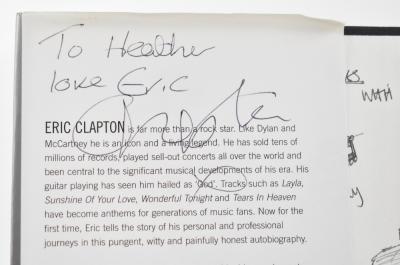 To Heather
love Eric
Clapton
ERIC CLAPTON is far more than a rock star. Like Dylan and
McCartney he is an icon and a living legend. He has sold tens of
millions of records, played sell-out concerts all over the world and
been central to the significant musical developments of his era. His
guitar playing has seen him hailed as 'God'. Tracks such as Layla,
Sunshine Of Your Love, Wonderful Tonight and Tears In Heaven
have become anthems for generations of music fans. Now for the
first time, Eric tells the story of his personal and professional
journeys in this pungent, witty and painfully honest autobiography.
WITH